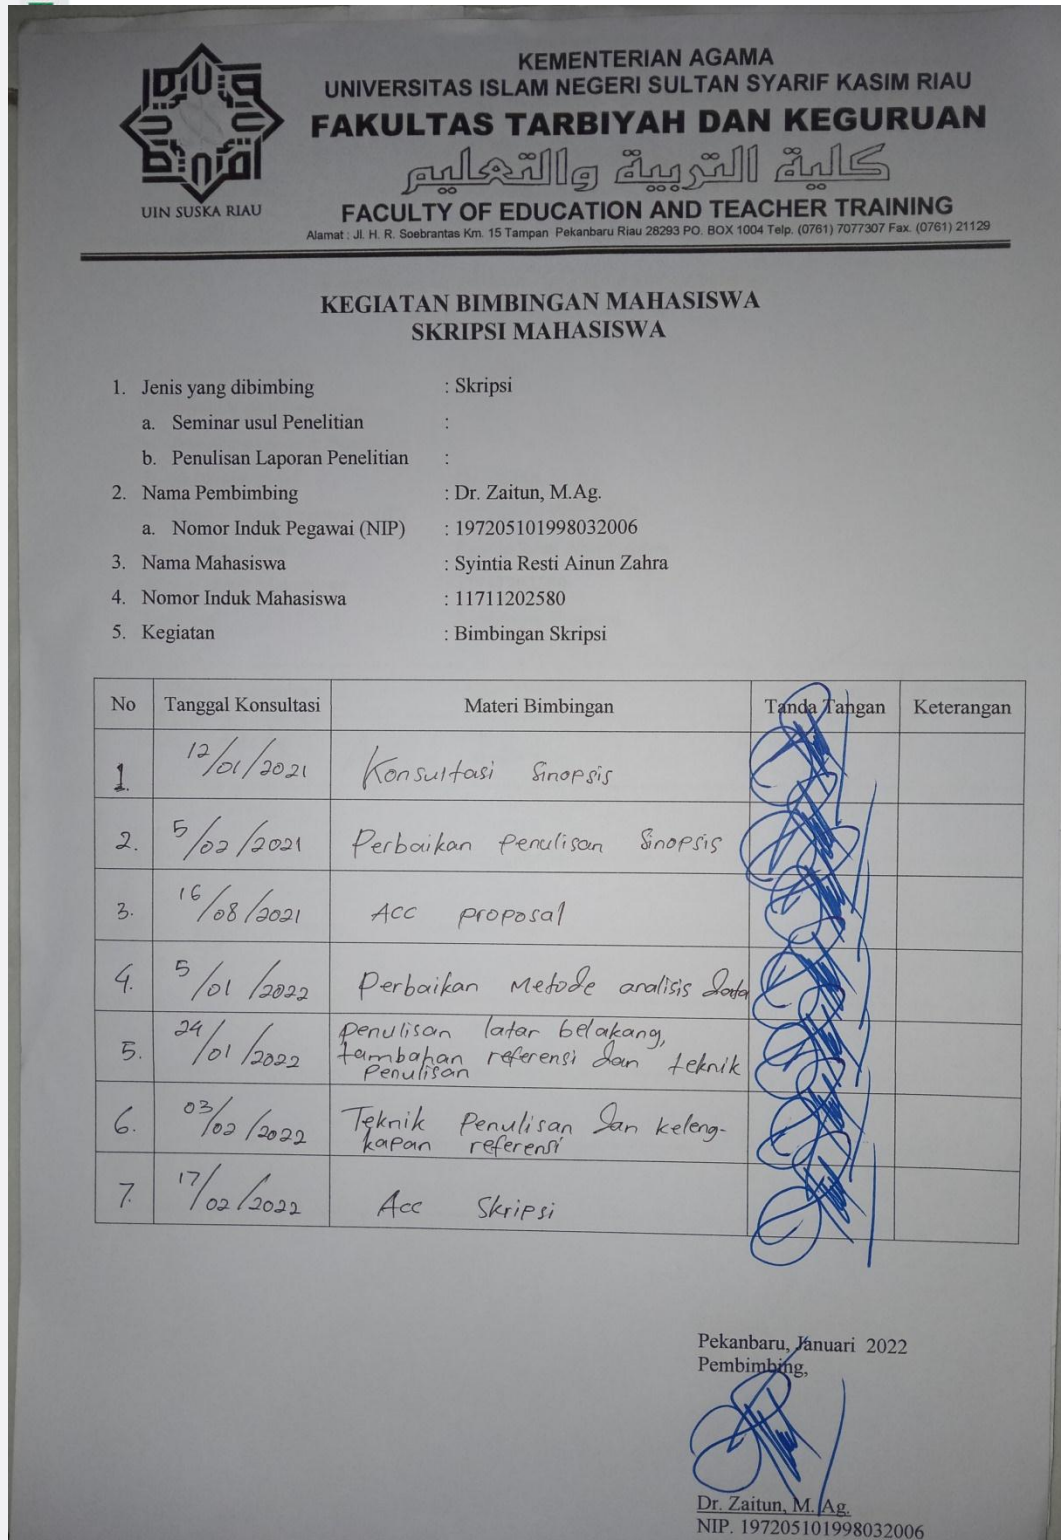 UIN SUSKA RIAU
KEMENTERIAN AGAMA
UNIVERSITAS ISLAM NEGERI SULTAN SYARIF KASIM RIAU
FAKULTAS TARBIYAH DAN KEGURUAN
كلية التربية والتعليم
FACULTY OF EDUCATION AND TEACHER TRAINING
Alamat : Jl. H. R. Soebrantas Km. 15 Tampan Pekanbaru Riau 28293 PO. BOX 1004 Telp. (0761) 7077307 Fax. (0761) 21129
KEGIATAN BIMBINGAN MAHASISWA
SKRIPSI MAHASISWA
1. Jenis yang dibimbing : Skripsi
a. Seminar usul Penelitian :
b. Penulisan Laporan Penelitian :
2. Nama Pembimbing : Dr. Zaitun, M.Ag.
a. Nomor Induk Pegawai (NIP) : 197205101998032006
3. Nama Mahasiswa : Syintia Resti Ainun Zahra
4. Nomor Induk Mahasiswa : 11711202580
5. Kegiatan : Bimbingan Skripsi
No Tanggal Konsultasi Materi Bimbingan Tanda Tangan Keterangan
1. 12/01/2021 Konsultasi Sinopsis
2. 5/02/2021 Perbaikan penulisan Sinopsis
3. 16/08/2021 Acc proposal
4. 5/01/2022 Perbaikan Metode analisis data
5. 24/01/2022 penulisan latar belakang,
tambahan referensi dan teknik
penulisan
6. 03/02/2022 Teknik Penulisan dan keleng-
kapan referensi
7. 17/02/2022 Acc Skripsi
Pekanbaru, Januari 2022
Pembimbing,
Dr. Zaitun, M. Ag.
NIP. 197205101998032006